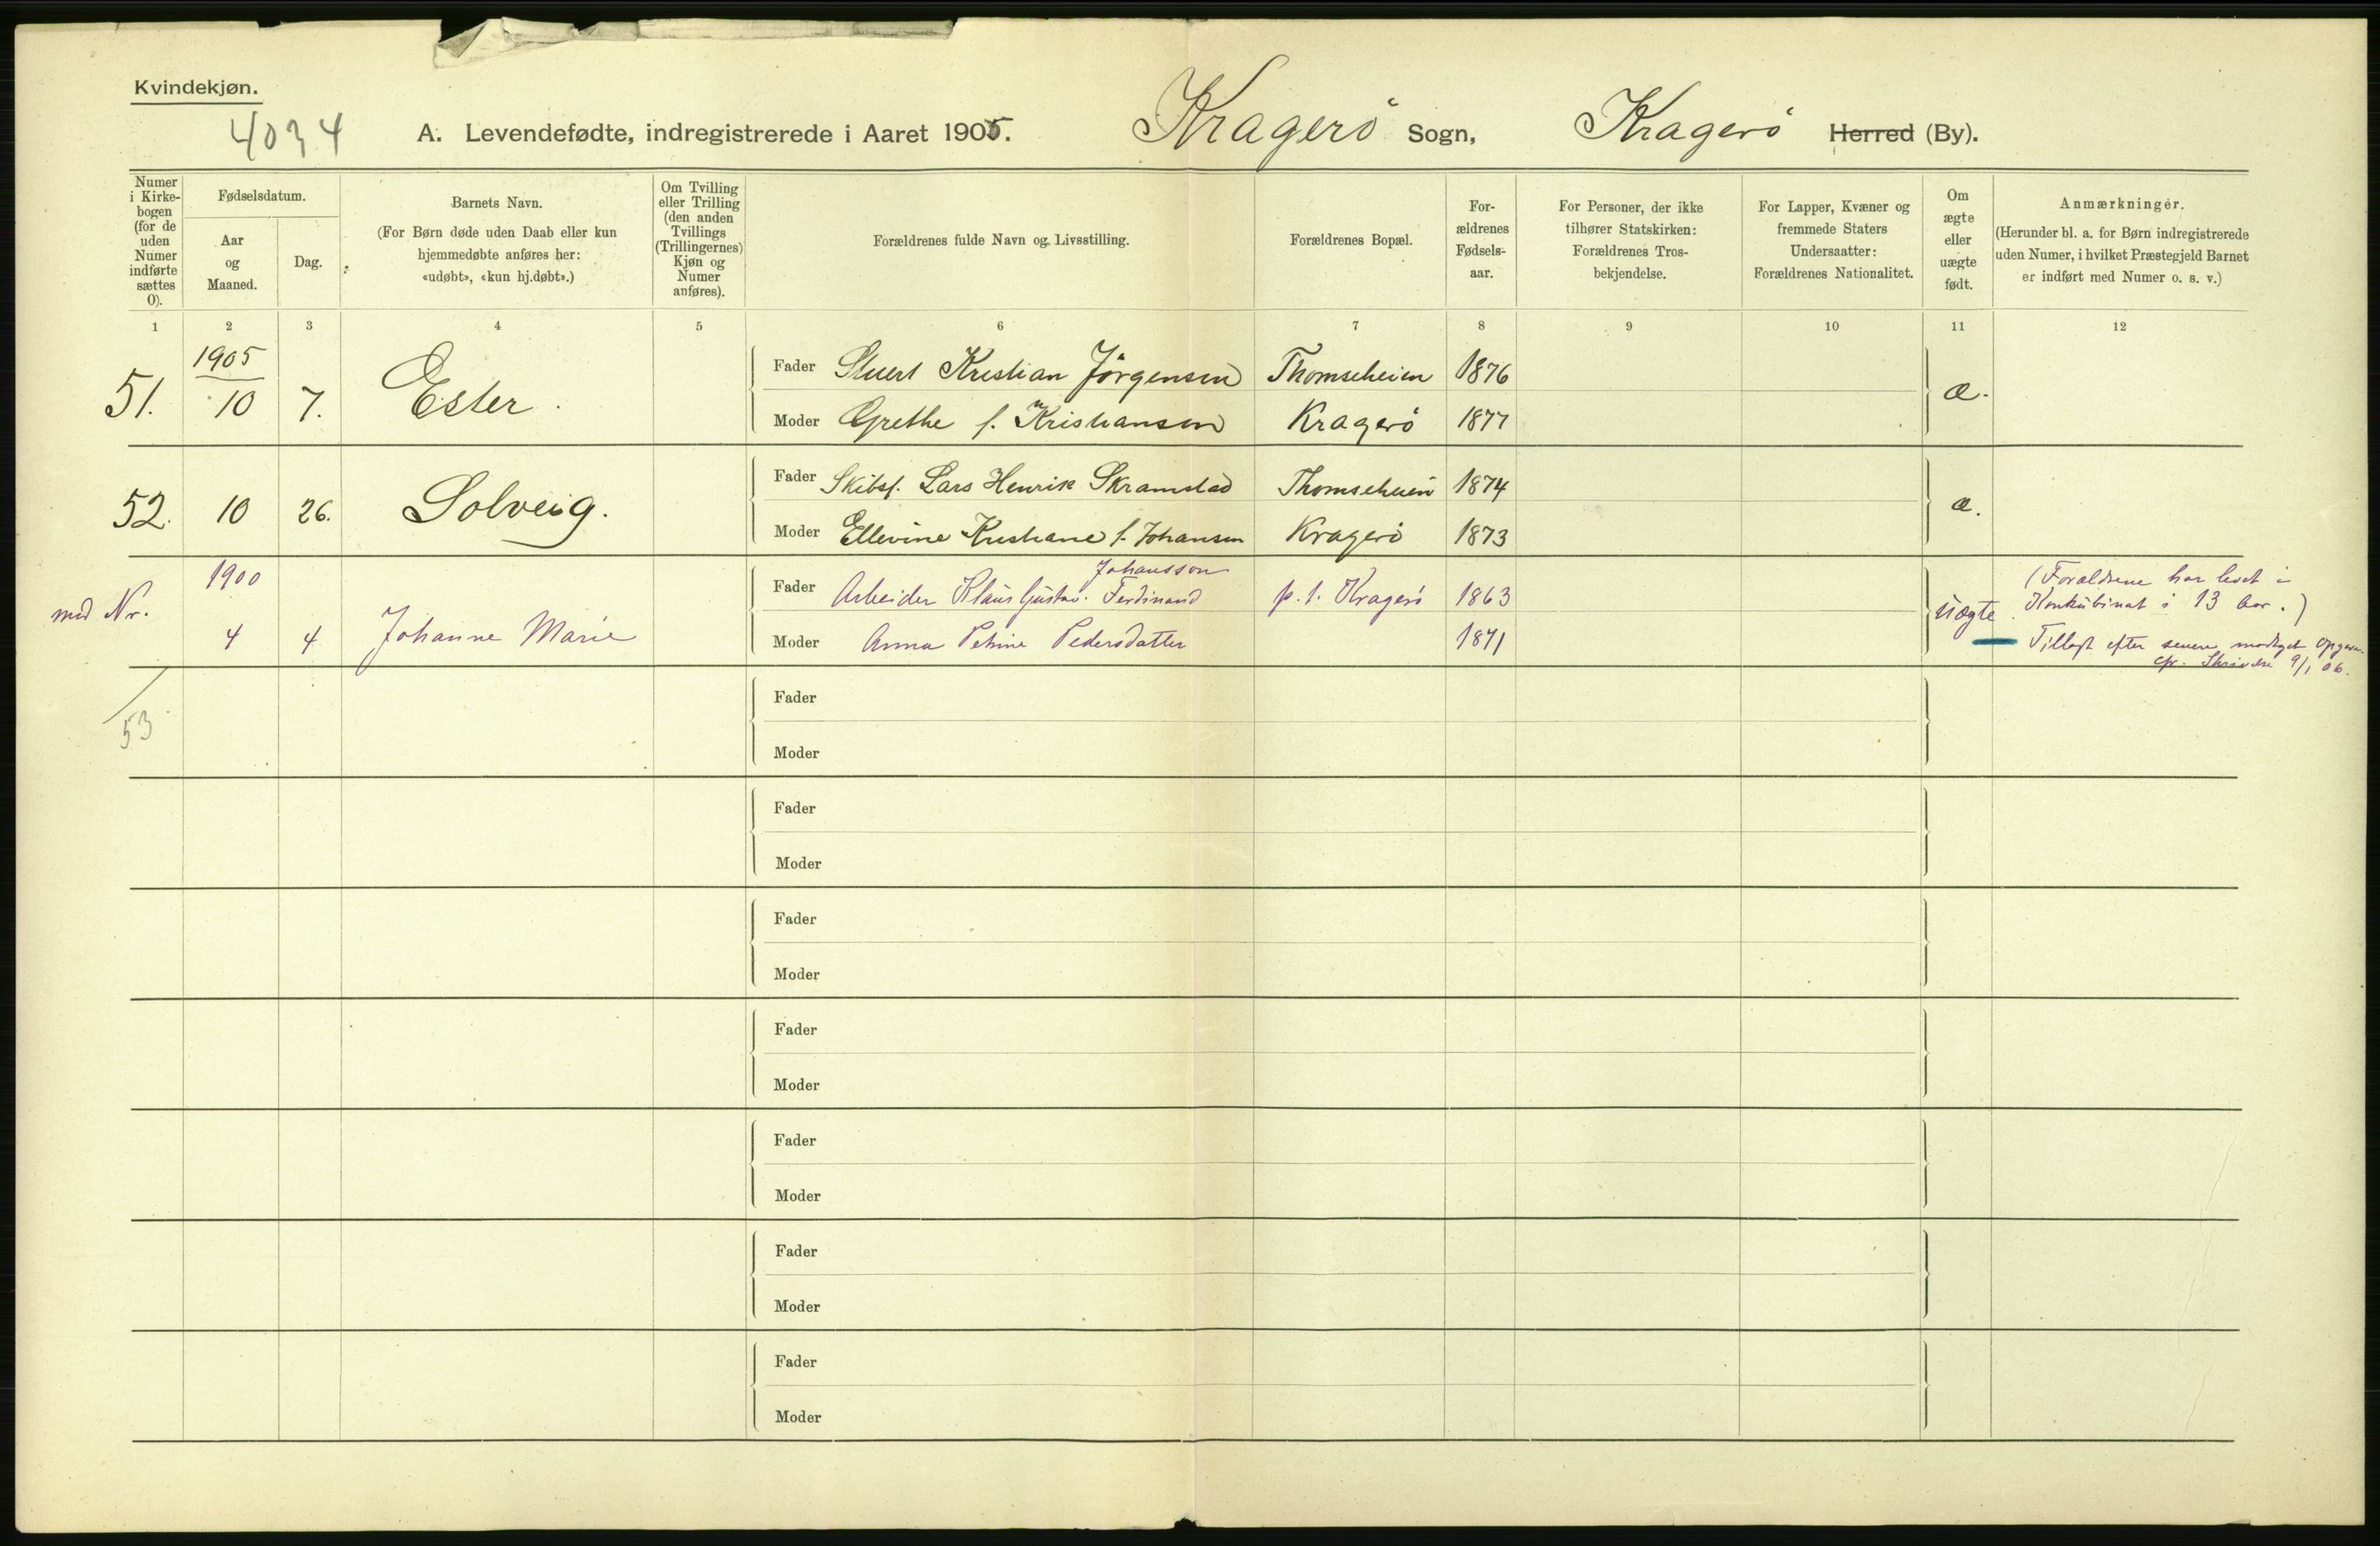 Kvindekjøn.
4034
A. Levendefødte, indregistrerede i Aaret 1905. Kragerö Sogn, Kragerö Herred (By).
Numer i Kirke-bogen (for de uden Numer indførte sættes 0).
Fødselsdatum.
Aar og Maaned.
Dag.
Barnets Navn.
(For Børn døde uden Daab eller kun hjemmedøbte anføres her: «udøbt», «kun hj.døbt».)
Om Tvilling eller Trilling (den anden Tvillings (Trillingernes) Kjøn og Numer anføres).
Forældrenes fulde Navn og Livsstilling.
Forældrenes Bopæl.
For-ældrenes Fødsels-aar.
For Personer, der ikke tilhører Statskirken: Forældrenes Tros-bekjendelse.
For Lapper, Kvæner og fremmede Staters Undersaatter: Forældrenes Nationalitet.
Om ægte eller uægte født.
Anmærkninger.
(Herunder bl. a. for Børn indregistrerede uden Numer, i hvilket Præstegjeld Barnet er indført med Numer o. s. v.)
1 2 3 4 5 6 7 8 9 10 11 12
1905
51. 10 7. Ester.
Fader Kristian Jörgensen Thomseheien 1876
Moder Grethe f. Kristiansen Kragerö 1877
æ.
52. 10 26. Solveig.
Fader Skibsf. Lars Henrik Skramstad Thomseheien 1874
Moder Ellevine Kristiane f. Johansen Kragerö 1873
æ.
1900
med Nr. 4 4 Johanne Marie
Johansson
Fader Arbeider Klaus Gustav Ferdinand p. t. Kragerö 1863
Moder Anna Petrine Pedersdatter 1871
uægte
(Forældrene har levet i
Konkubinat i 13 Aar.)
Tillagt efter senere modtaget Opgave.
cfr. Skrivelse 9/1 06.
53
Fader
Moder
Fader
Moder
Fader
Moder
Fader
Moder
Fader
Moder
Fader
Moder
Fader
Moder